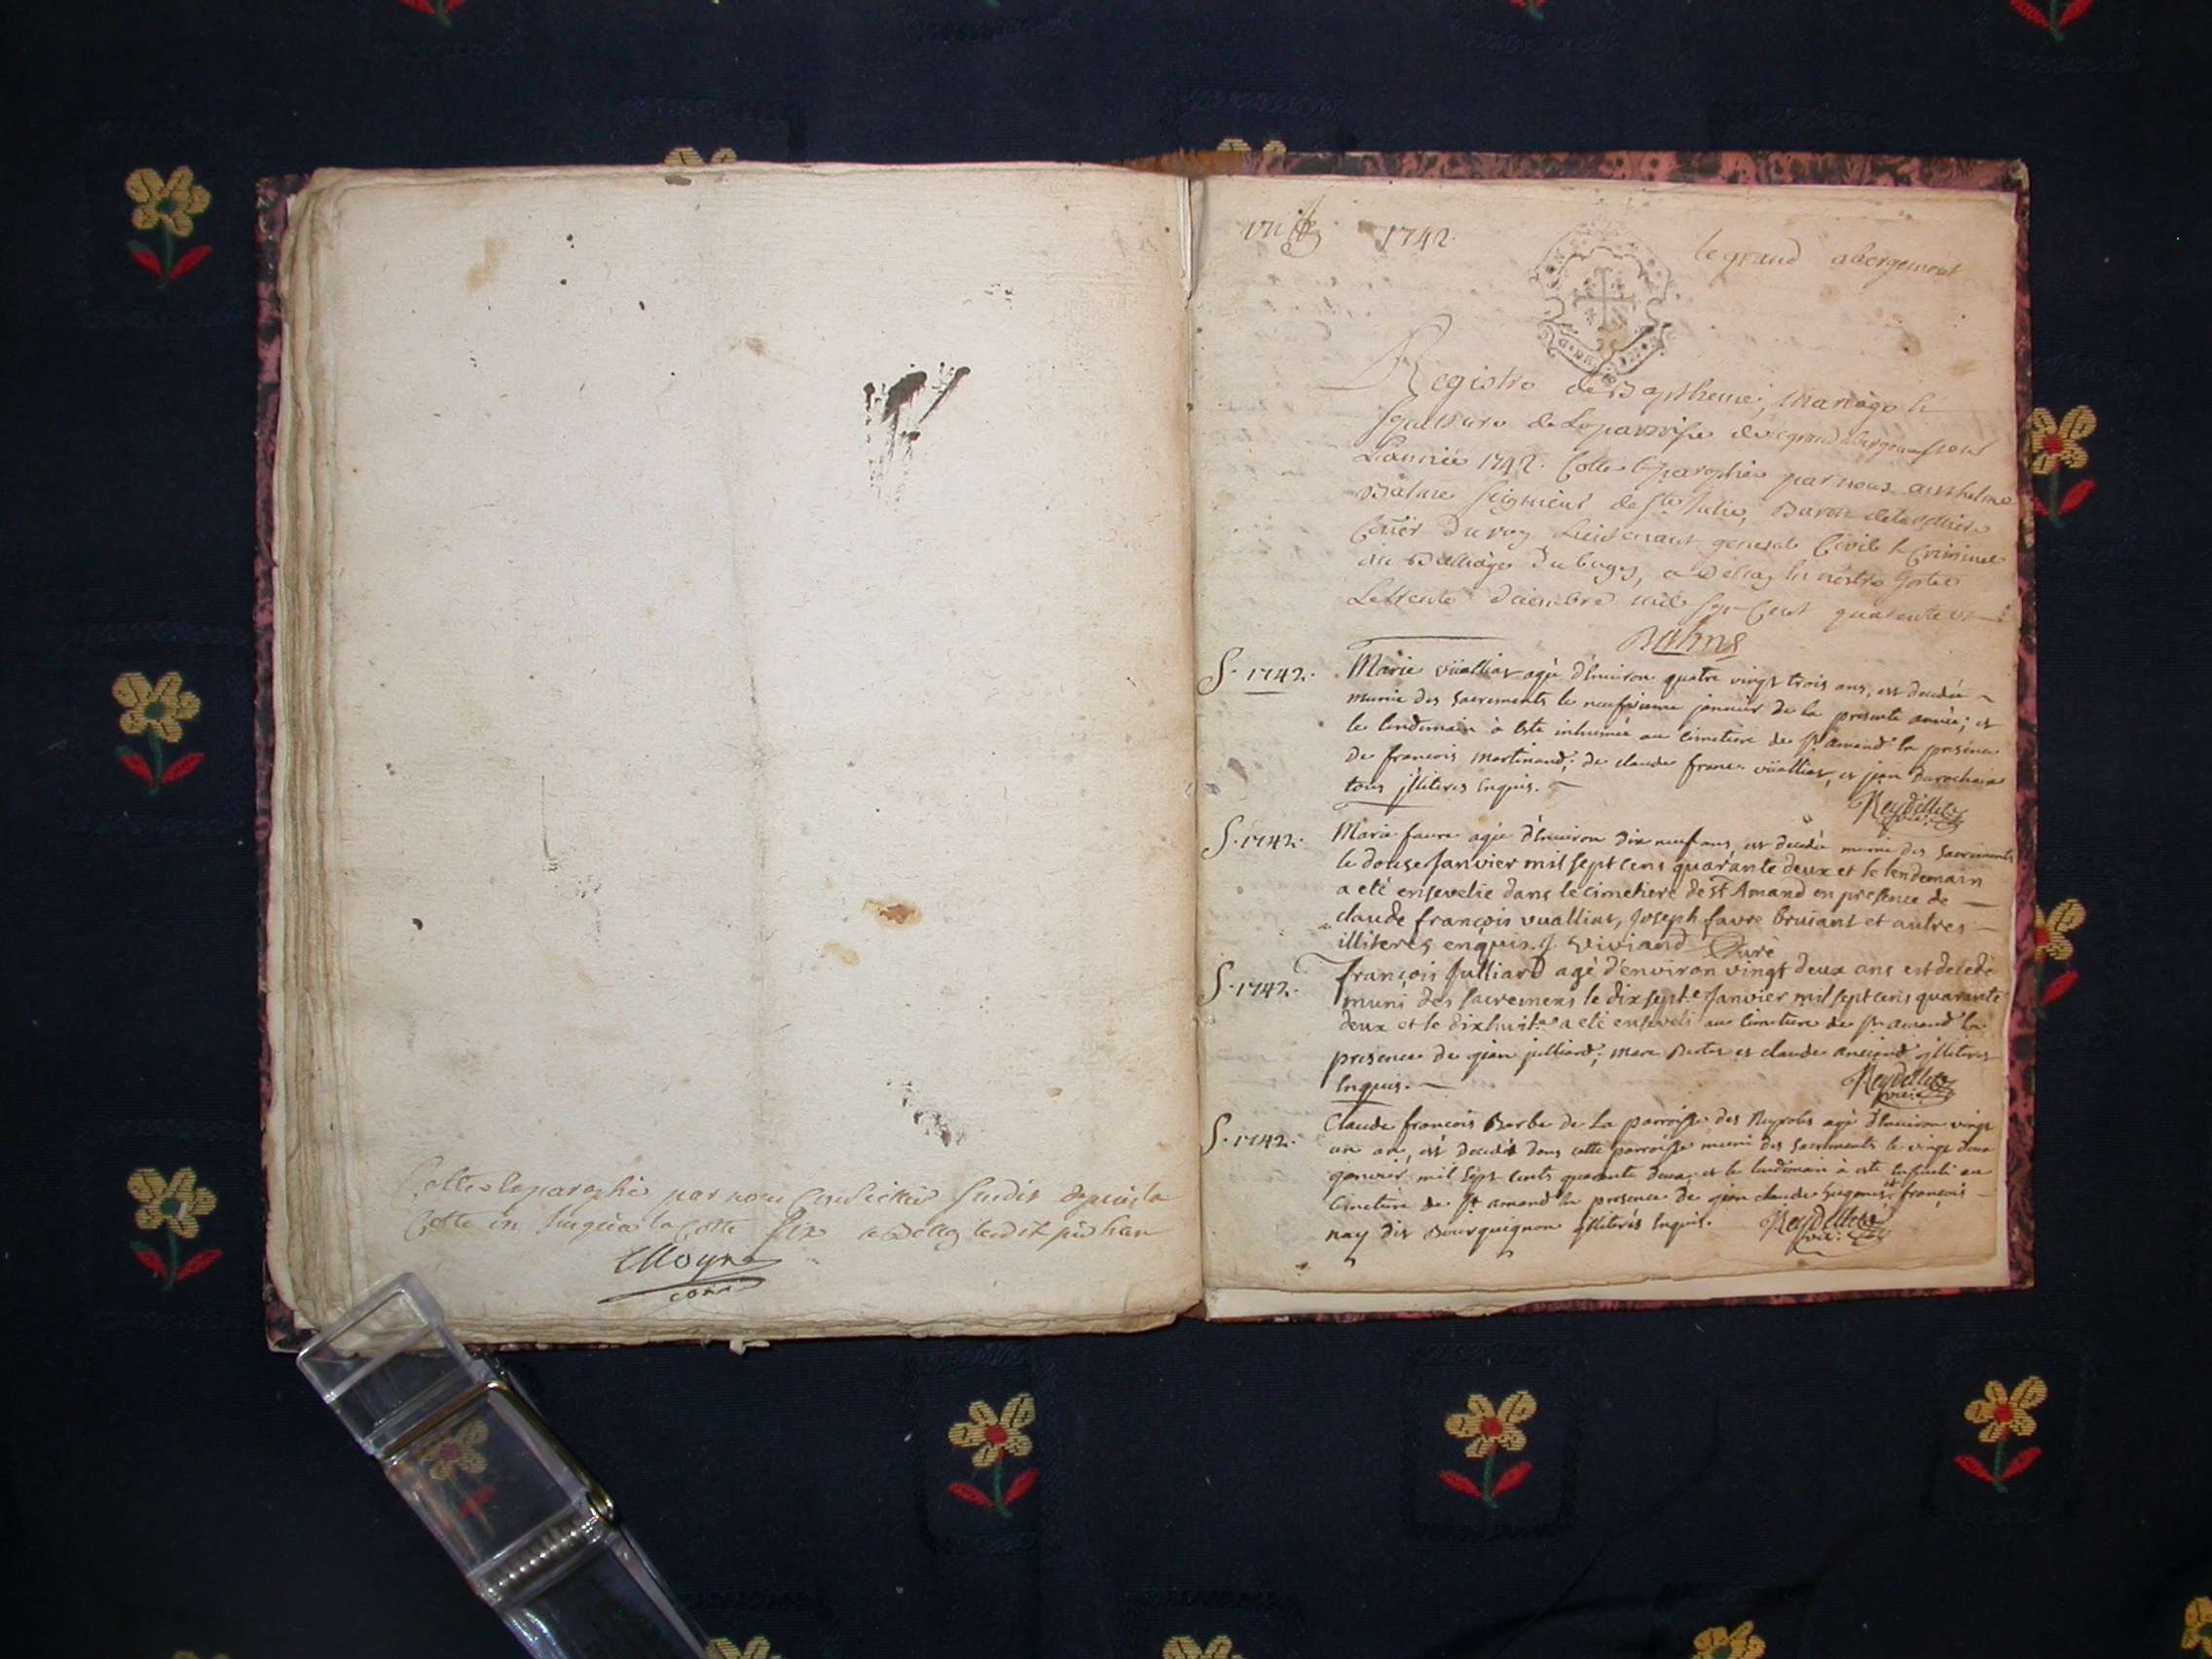 Cotté et paraphé par nous Conseiller sindit depuis la
Cotte un jusqu'a la Cotte six a Belley ledit jour
Moyne
1742
le grand abergement
Registre de Baptheme, Mariage &
sepulture de La parroisse du grand abergement pour
L'année 1742. Cotté & paraphé par nous Anthelme
Balme seigneur de Ste Julie, Baron de
Coner du roy Lieutenant general Civil & Criminel
au Balliage du bugey, a Belley en nostre hostel
Le trente decembre mil sept Cent quarente un
Balme
S. 1742. Marie vüalliat agée d'Environ quatre vingt trois ans, est decedée
munie des sacrements le neufvieme janvier de la presente année; et
le lendemain à este inhumée au cimetiere de st amand En presence
de francois martinand; de claude franc. vüalliat, et jean Durochain
tous jlliteres Enquis.
Reydellet vic.
S. 1742. Marie favre agée d'Environ dix neuf ans, est decedée munie des sacrements
le douze Janvier mil sept cens quarante deux et le lendemain
a eté ensevelie dans le cimetiere de St Amand en presence de
claude françois vualliat, Joseph favre bruiant et autres
illiteres enquis. J. Viviand Curé
S. 1742. françois Julliard agé d'environ vingt deux ans est decedé
muni des sacremens le dix septe Janvier mil sept cens quarante
deux et le dixhuit.e a eté enseveli au Cimetiere de st amand En
presence de gian julliard; marc Berter et claude anciand jlliteres
Enquis.
Reydellet vic.
S. 1742. Claude francois Barbe de La parroisse des Neyroles agé d'Environ vingt
un an, est decedé dans cette parroisse muni des sacrements le vingt deux
janvier mil sept cents quarante deux et le lendemain à esté Enseveli au
Cimetiere de st amand En presence de gian claude hugonet et françois
nay dit Bourguignon jlliterés Enquis.
Reydellet vic.